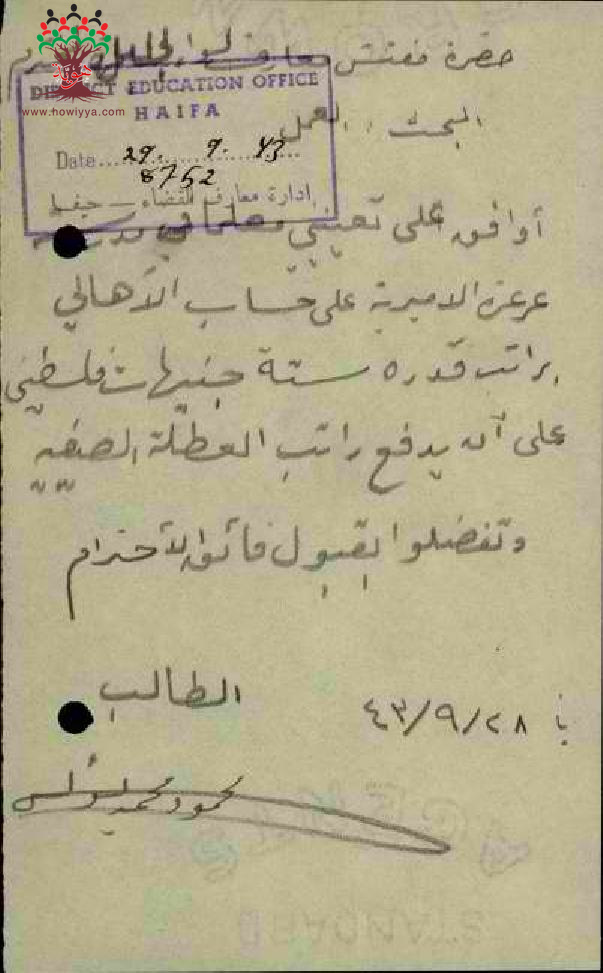 حضرة مفتش معارف لواء الجليل المحترم
www.howiyya.com
DISTRICT EDUCATION OFFICE
HAIFA
Date... 29. 9. 43
8752
ادارة معارف القضاء — حيفا
البحث: العمل
أوافق على تعييني معلما في مدرسة
عرعرة الاميرية على حساب الأهالي
براتب قدره ستة جنيهات فلسطيني
على أن يدفع راتب العطلة الصيفية
وتفضلوا بقبول فائق الأحترام
الطالب
٤٣/٩/٢٨
محمود محمد